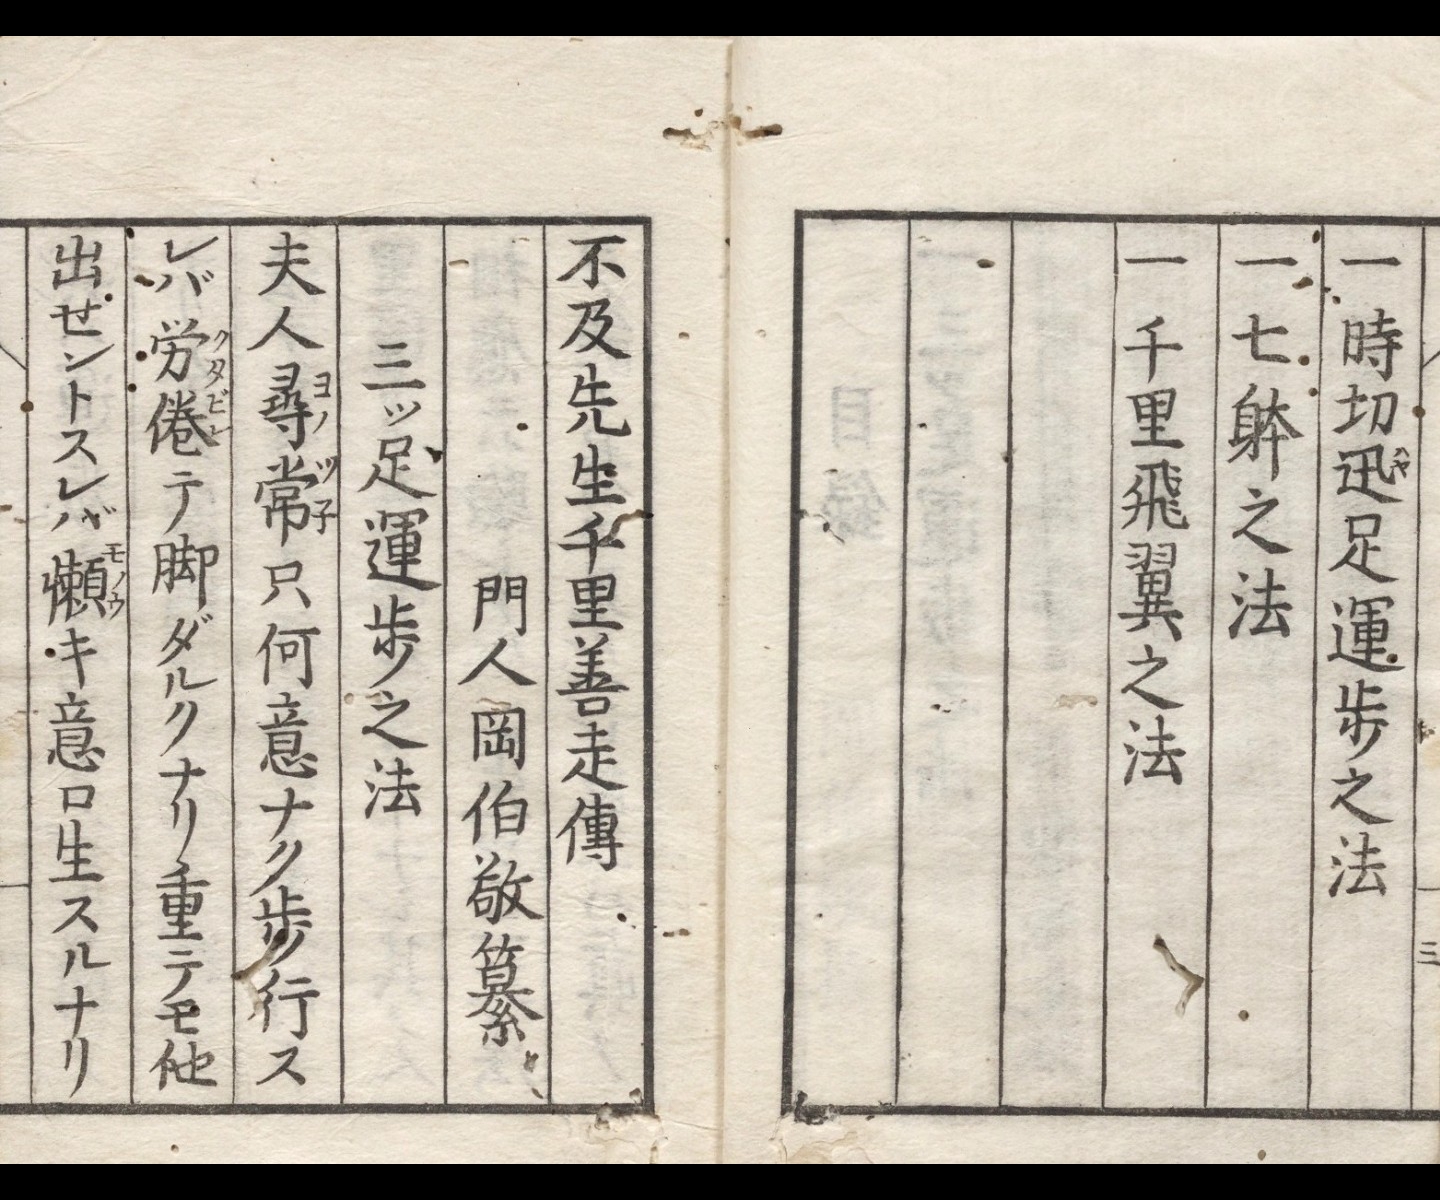 一時切迅足運歩之法
ハヤ
一七躰之法
一千里飛翼之法
三
不及先生千里善走傳
門人岡伯敬纂
三ッ足運歩之法
夫人尋常只何意ナク歩行ス
ヨノツ子
レバ労倦テ脚ダルクナリ重テモ他
クタビレ
出せントスレバガ懶キ意ロ生スルナリ
モノウ